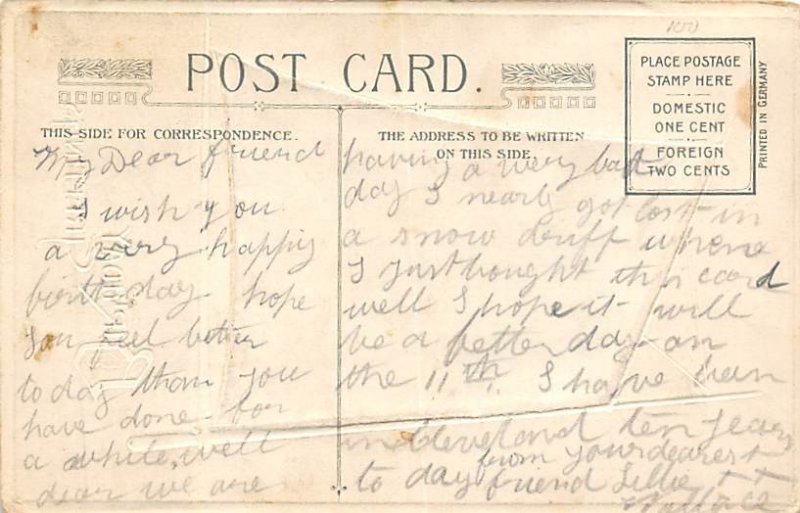 POST CARD.
THIS SIDE FOR CORRESPONDENCE.
THE ADDRESS TO BE WRITTEN
ON THIS SIDE.
PLACE POSTAGE
STAMP HERE
DOMESTIC
ONE CENT
FOREIGN
TWO CENTS
PRINTED IN GERMANY
My Dear friend
I wish you
a very happy
birth day hope
you feel better
to day than you
have done for
a while, well
dear we are
having a very bad
day I nearly got lost in
a snow druff where
I just bought this card
well I hope it will
be a better day on
the 11th. I have been
in Cleveland ten years
from your dearest
to day friend Lillie
Wallace